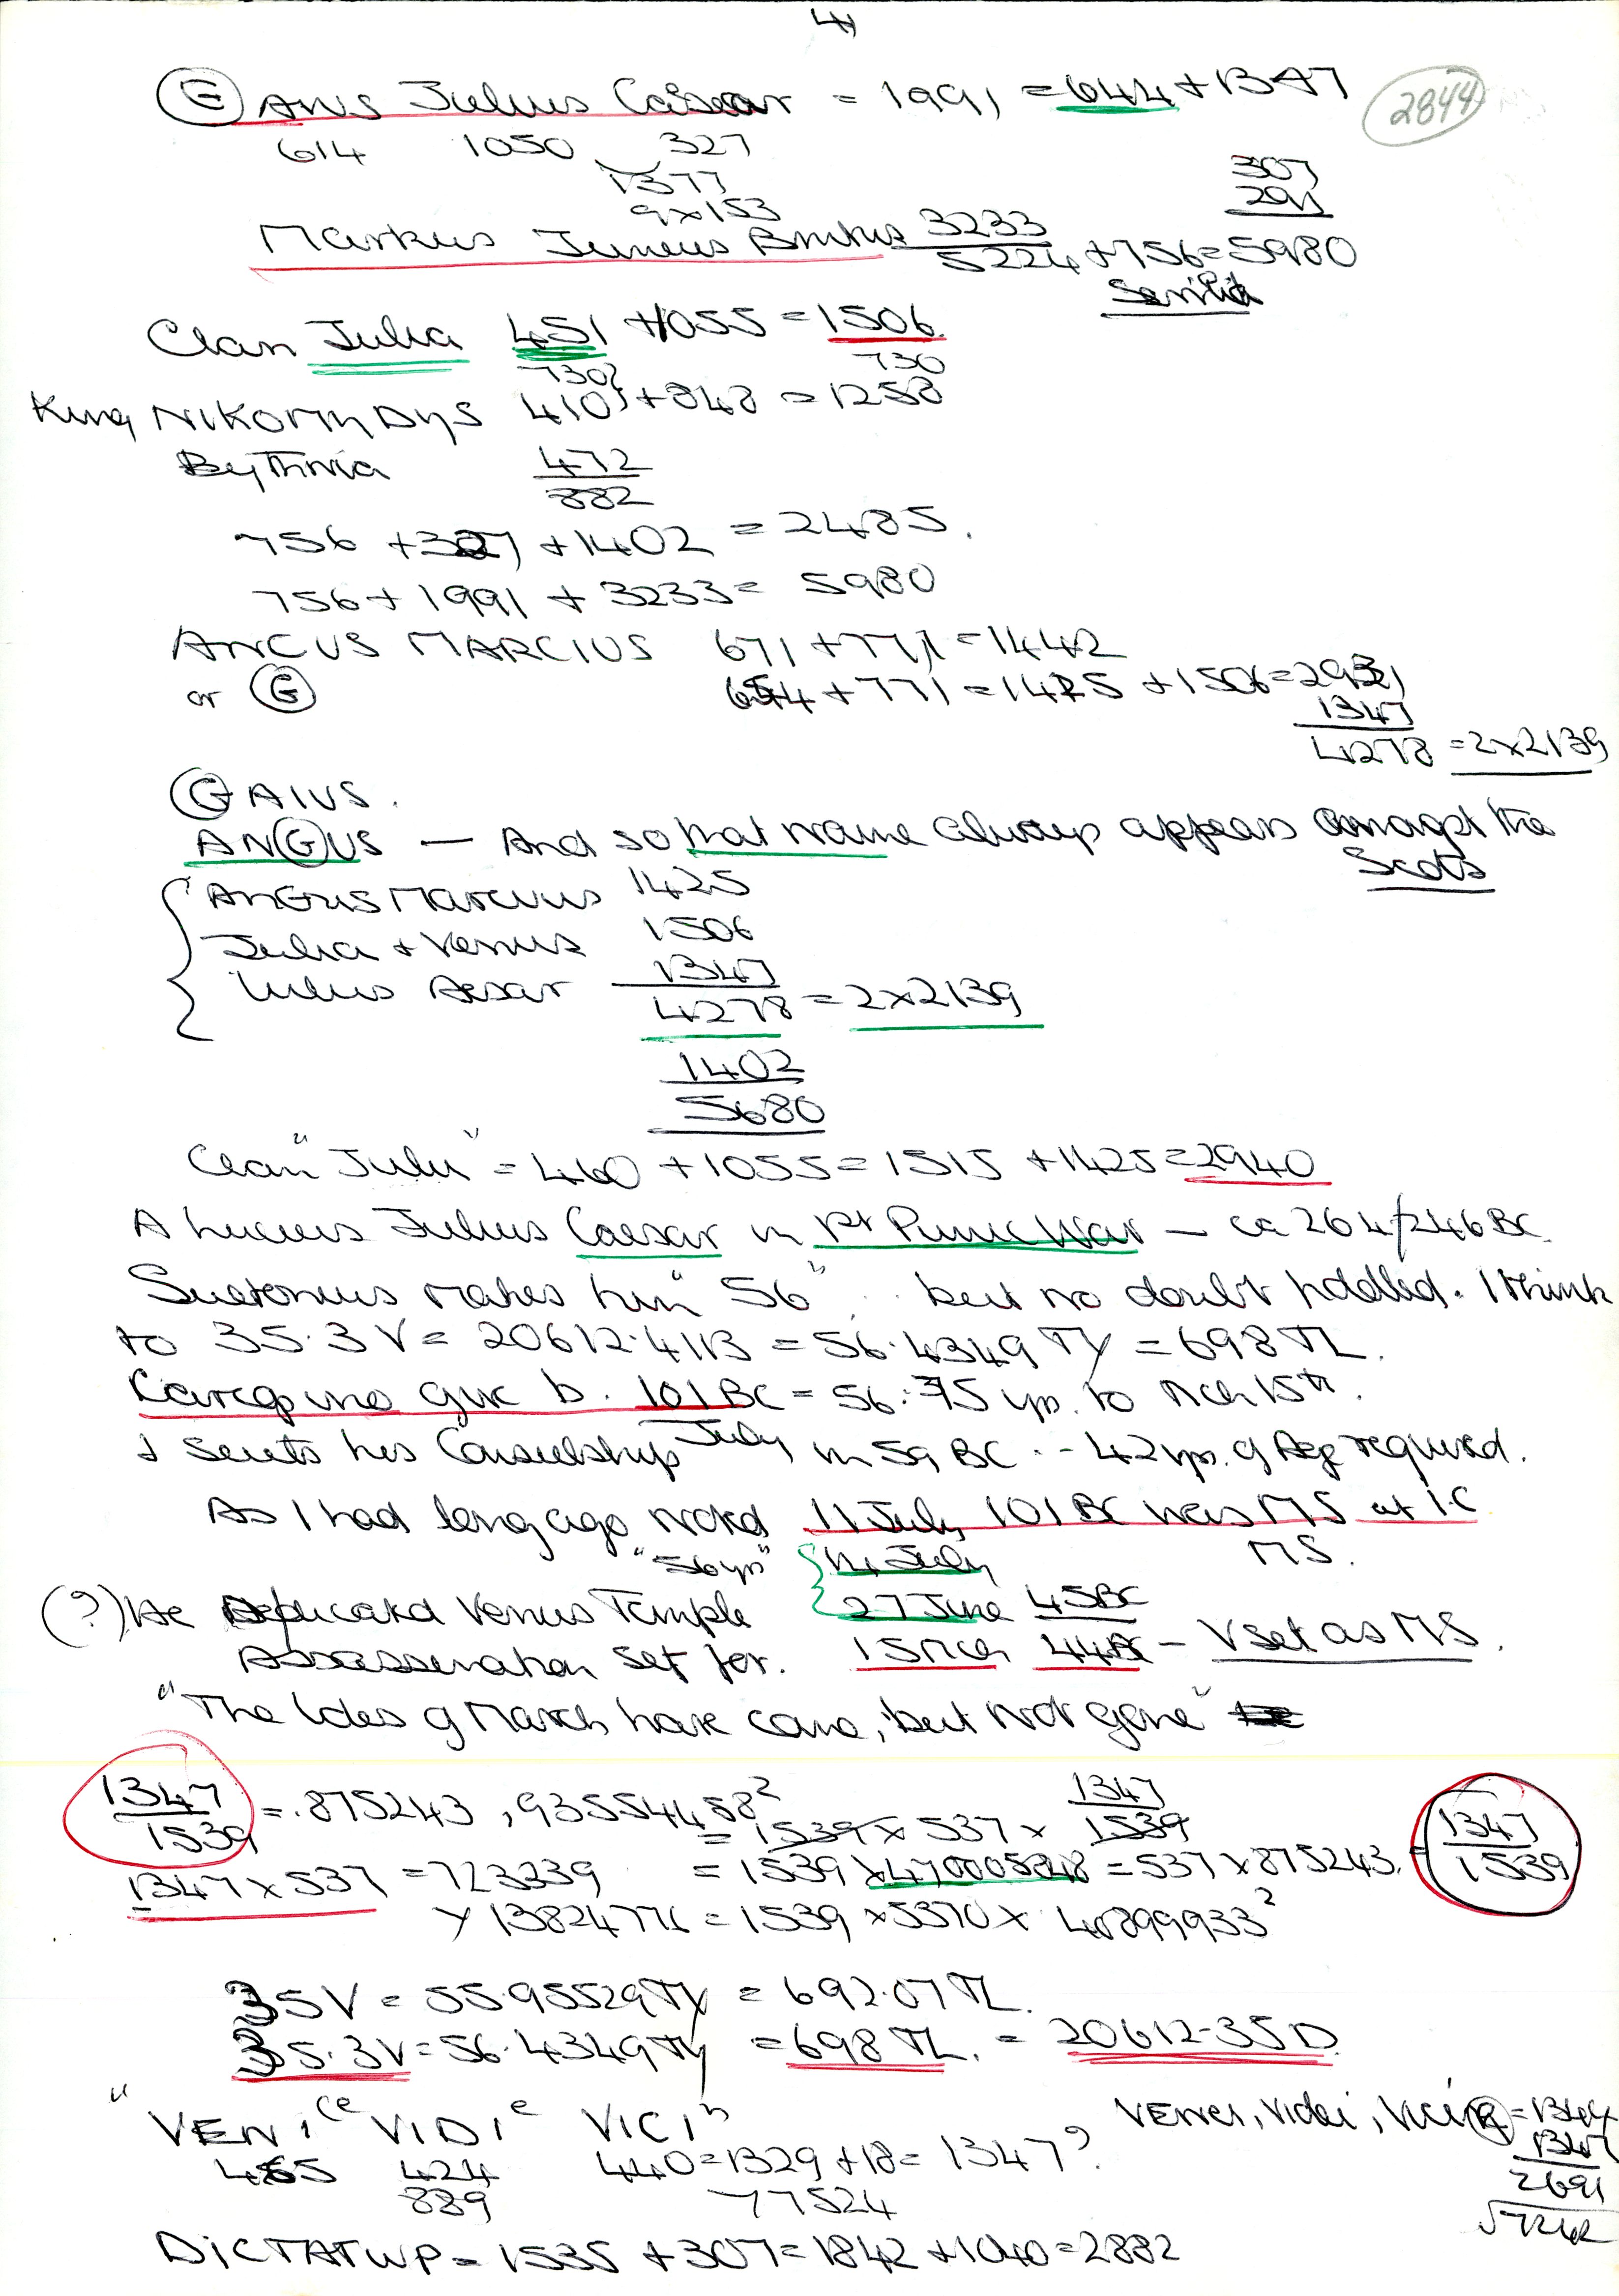 4)
(G)AIUS Julius Caesar = 1991 = 644 + 1347
2844
614 1050 327
1377
9×153
307
291
Markus Junius Brutus 3233
5224 + 756 = 5980
Servilia
Clan Julia 451 + 1055 = 1506.
730} 730
King NIKOMHDHS 410} + 848 = 1258
ByThnia 472
882
756 + 327 + 1402 = 2485.
756 + 1991 + 3233 = 5980
ANCUS MARCIUS 671 + 771 = 1442
or (G) 654 + 771 = 1425 + 1506 = 2931
1347
4278 = 2×2139
(G)AIUS.
AN(G)US — And so that name always appears amongst the
Scots
{ ANGUS Marcius 1425
Julia + Venus 1506
Iulius Aesar 1347
4278 = 2×2139
1402
5680
Clan "Julii" = 460 + 1055 = 1515 + 1425 = 2940
A Lucius Julius Caesar in 1st Punic War — ca 264/246 BC.
Suetonius makes him "56", but no doubt fiddled. I think
to 35.3 V = 20612.4113 = 56.4349 TY = 698 TL.
Carcopino give b. 101 BC = 56.75 yrs. to Mch 15th.
July
& suits his Consulship in 59 BC - 42 yrs. of Age required.
As I had long ago noted 11 July 101 BC was MS at I.C
"56 yrs" {12 July MS.
(?) He Dedicated Venus Temple 27 June 45 BC
Assassination set for. 15 Mch 44 BC - V set as MS.
"The Ides of March have come, but not gone"
1347/1539 = .875243, .93554458² = 1539 × 537 × 1347/1539
1347 × 537 = 723339 = 1539 × 470005848 = 537 × 875243. = 1347/1539
× 13824776 = 1539 × 5370 × 40899933²
35V = 55.95529 TY = 692.07 TL.
35.3V = 56.4349 TY = 698 TL. = 20612.35 D.
"VENI ce VIDI e VICI" VENEI, Videi, Vicin(R) = 1344
465 424 440 = 1329 + 18 = 1347? 1347
889 77524 2691
√7242
DICTATWP = 1535 + 307 = 1842 + 1040 = 2882